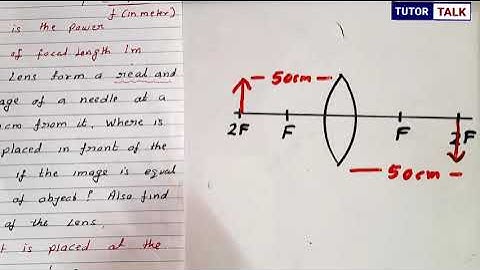 TUTOR TALK
f (in meter)
is the power
of focal length 1m
Lens form a real and
age of a needle at a
cm from it. Where is
placed in front of the
if the image is equal
of object? Also find
of the Lens.
t is placed at the
50cm
2F F F 2F
50cm